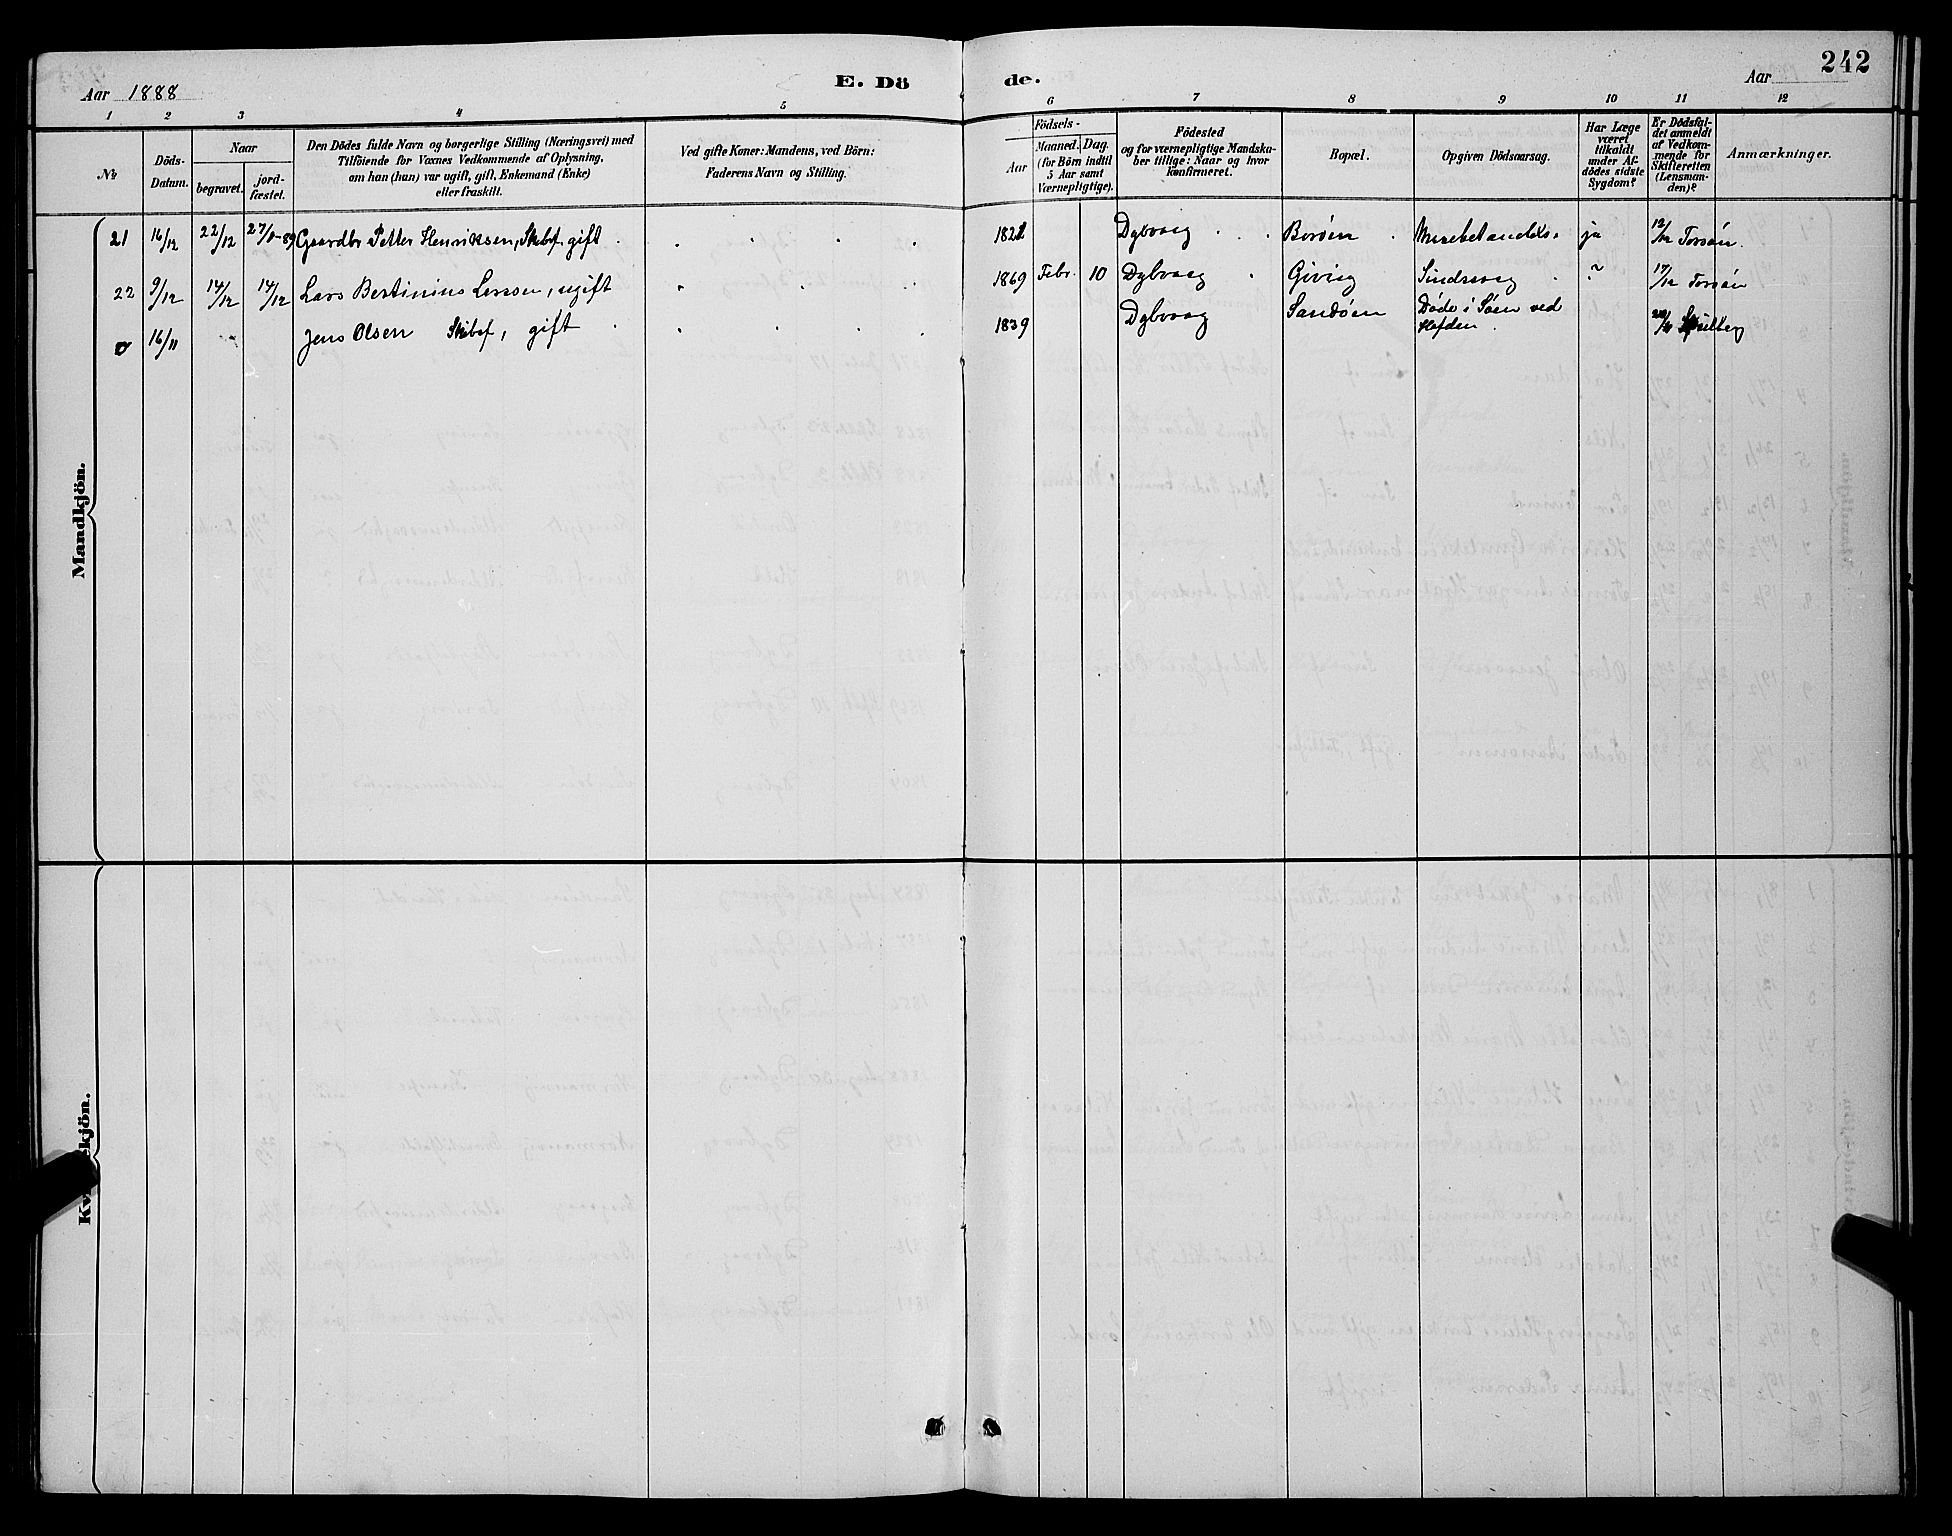 242
E. Dö de.
Aar 1888 Aar
1 2 3 4 5 6 7 8 9 10 11 12
№
Döds-Datum.
Naar
begravet.
jord-fæstet.
Den Dödes fulde Navn og borgerlige Stilling (Næringsvei) med
Tilföiende for Voxnes Vedkommende af Oplysning,
om han (hun) var ugift, gift, Enkemand (Enke)
eller fraskilt.
Ved gifte Koner: Mandens, ved Börn:
Faderens Navn og Stilling.
Födsels-
Aar
Maaned. Dag.
(for Börn indtil
5 Aar samt
Værnepligtige).
Födested
og for værnepligtige Mandska-
ber tillige: Naar og hvor
konfirmeret.
Bopæl.
Opgiven Dödsaarsag.
Har Læge
været
tilkaldt
under Af-
dödes sidste
Sygdom?
Er Dödsfal-
det anmeldt
af Vedkom-
mende for
Skifteretten
(Lensman-
den)?
Anmærkninger.
Mandkjön.
21 16/12 22/12 Gaardbr Petter Henriksen, Skibsf. gift 1822 Dybvaag Borøen ja Torsøn
22 9/12 14/12 14/12 Lars Bertinius Larsen, ugift 1869 Febr. 10 Dybvaag Giving Sindssvag ? 17/12 Torsøn
0 16/11 Jens Olsen Skibsf, gift 1839 Dybvaag Sandøen Døde i Søen ved